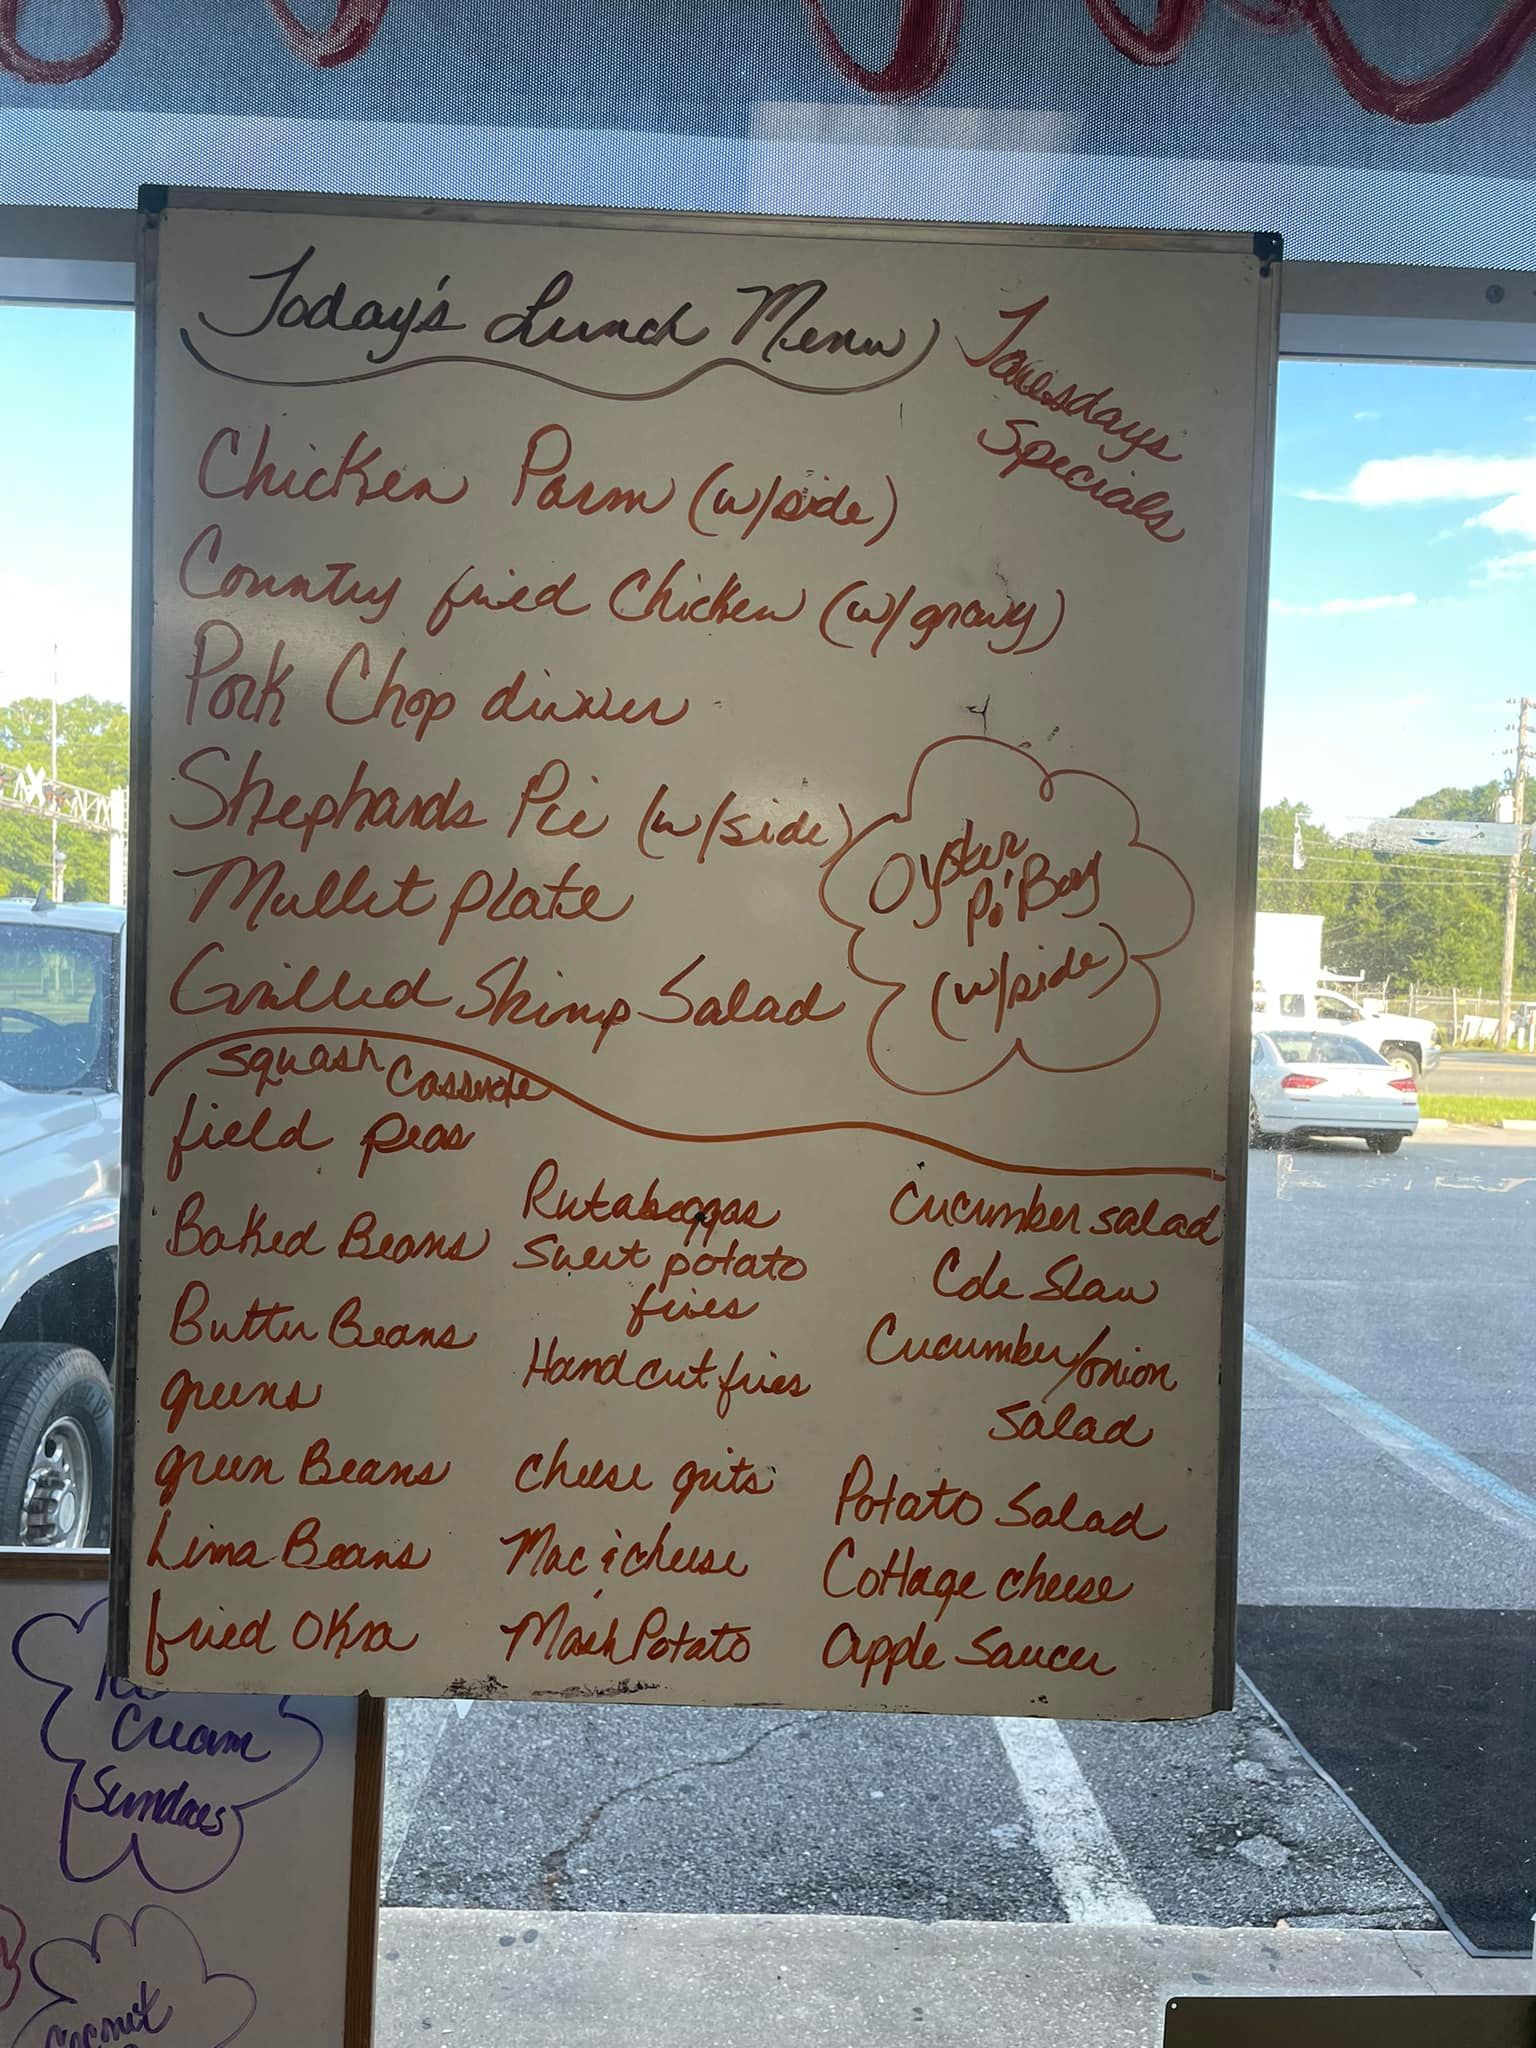 Today's Lunch Menu
Tuesdays
Specials
Chicken Parm (w/side)
Country fried Chicken (w/gravy)
Pork Chop dinner
Shephards Pie (w/side)
Mullet plate
Grilled Shimp Salad
Oyster
Po' Boy
(w/side)
Squash Casserole
field peas
Baked Beans
Butter Beans
greens
green Beans
Lima Beans
fried Okra
Rutabeggas
Sweet potato
fries
Hand cut fries
cheese grits
Mac & cheese
Mash Potato
Cucumber salad
Cole Slaw
Cucumber/onion
salad
Potato Salad
Cottage cheese
apple Sauce
Cream
Sundaes
Coconut